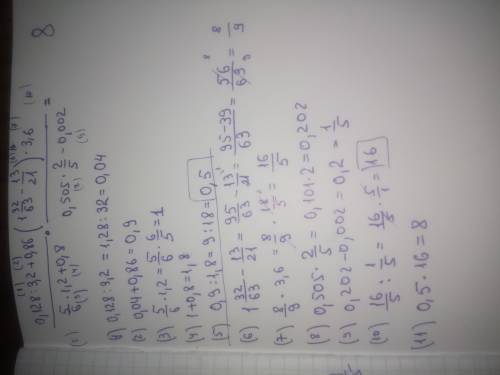 (1) (2) (6) (10) (7)
0,128:3,2+0,86 (1 32/63 − 13/21) · 3,6 (11) 8
————— · ————— =
5/6 · 1,2 + 0,8 0,505 · 2/5 − 0,002
(3) (4) (8) (9)
1) 0,128:3,2 = 1,28:32 = 0,04
(2) 0,04+0,86 = 0,9
(3) 5/6 · 1,2 = 5/6 · 6/5 = 1
(4) 1+0,8 = 1,8
(5) 0,9:1,8 = 9:18 = 0,5
(6) 1 32/63 − 13/21 = 95/63 − 13/21 = 95−39/63 = 56/63 = 8/9
(7) 8/9 · 3,6 = 8/9 · 18/5 = 16/5
(8) 0,505 · 2/5 = 0,101·2 = 0,202
(9) 0,202−0,002 = 0,2 = 1/5
(10) 16/5 : 1/5 = 16/5 · 5/1 = 16
(11) 0,5 · 16 = 8